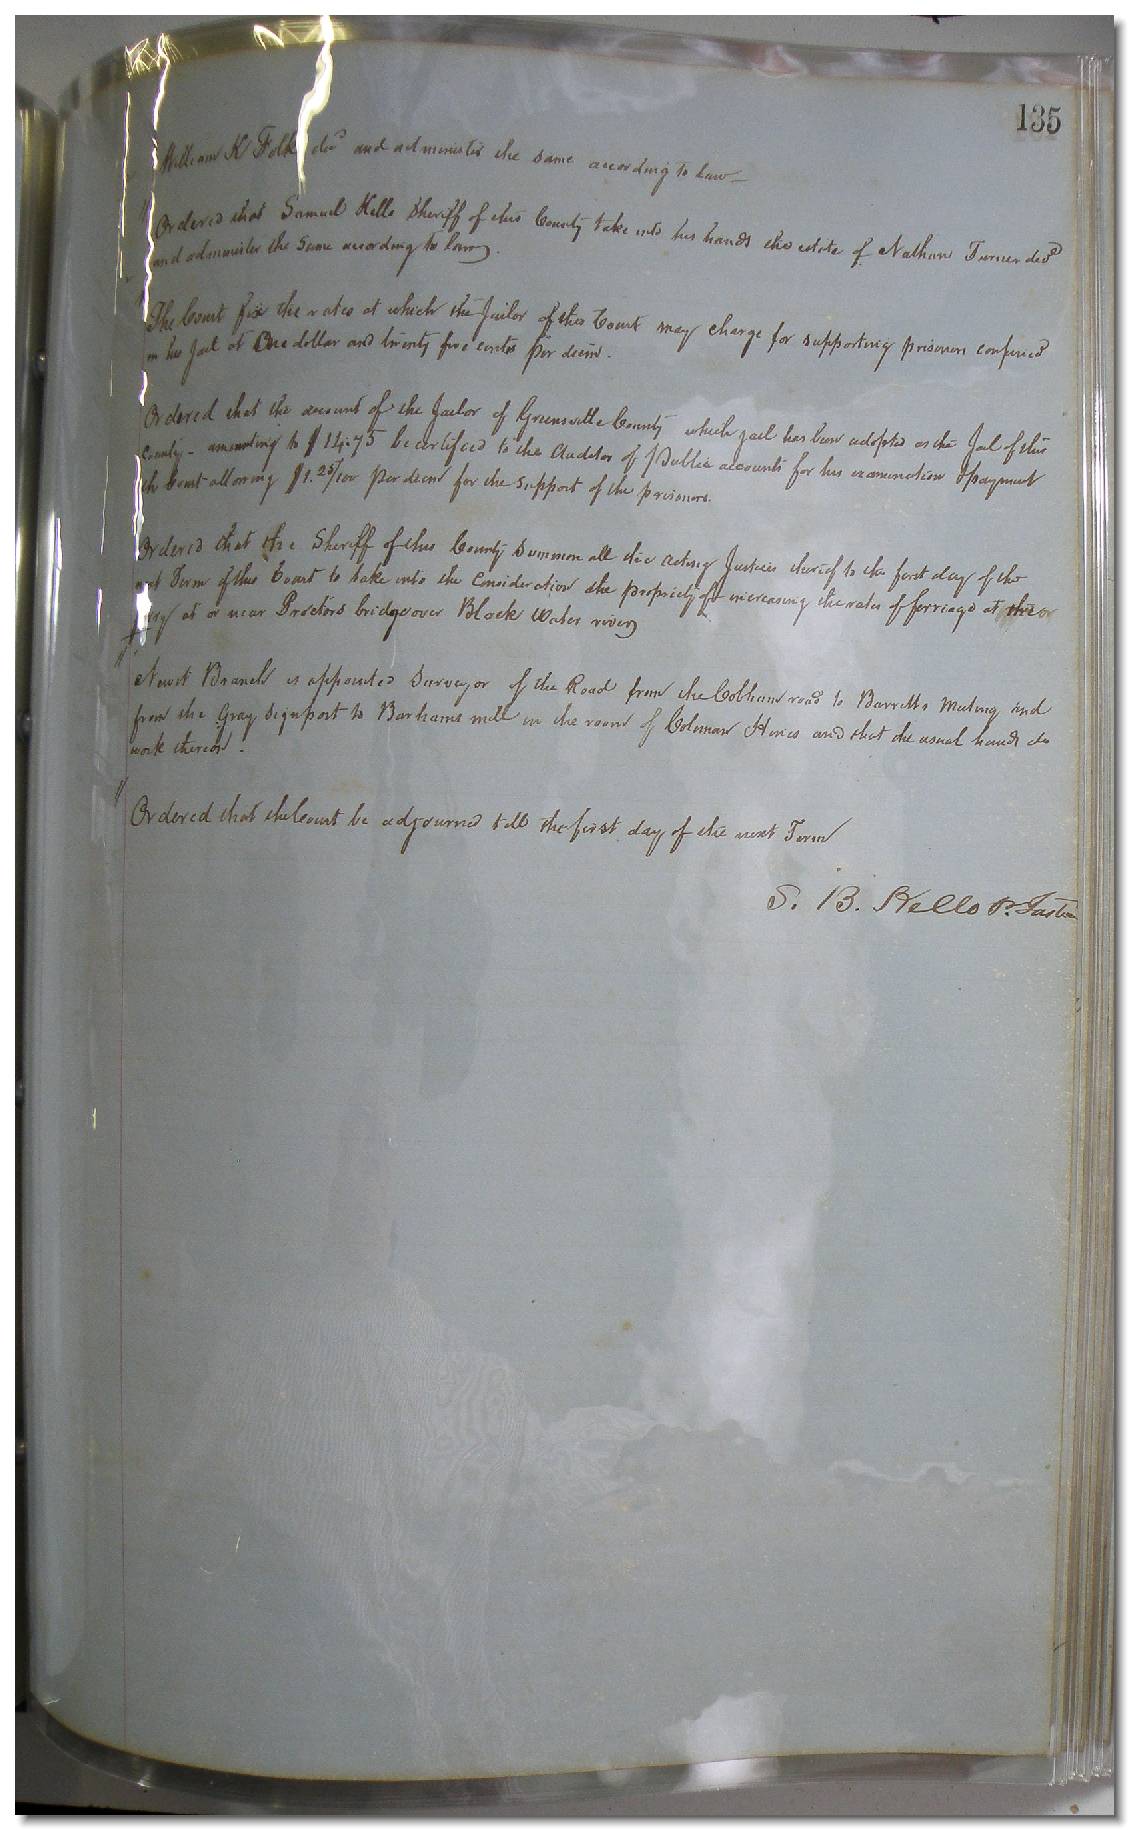 135
William K Folk decd and administer the same according to Law
Ordered that Samuel Kello Sheriff of this County take into his hands the estate of Nathan Turner decd
and administer the same according to law
The Court fix the rates at which the Jailor of this Court may charge for supporting prisoners confined
in his Jail at One dollar and twenty five cents per diem.
Ordered that the account of the Jailor of Greensville County which jail has been adopted as the Jail of this
County - amounting to $14.75 be certified to the Auditor of Public accounts for his examination & payment
the Court allowing $1.25/100 per diem for the support of the prisoners.
Ordered that the Sheriff of this County Summon all the acting Justices thereof to the first day of the
next Term of this Court to take into the Consideration the propriety of increasing the rates of ferriage at the
ferry at or near Proctors bridge over Black Water river
Newit Branch is appointed Surveyor of the Road from the Cobham road to Barretts Meeting and
from the Gray Signpost to Barhams mill in the room of Coleman Hines and that the usual hands do
work thereon.
Ordered that the Court be adjourned till the first day of the next Term
S. B. Kello P. Justice